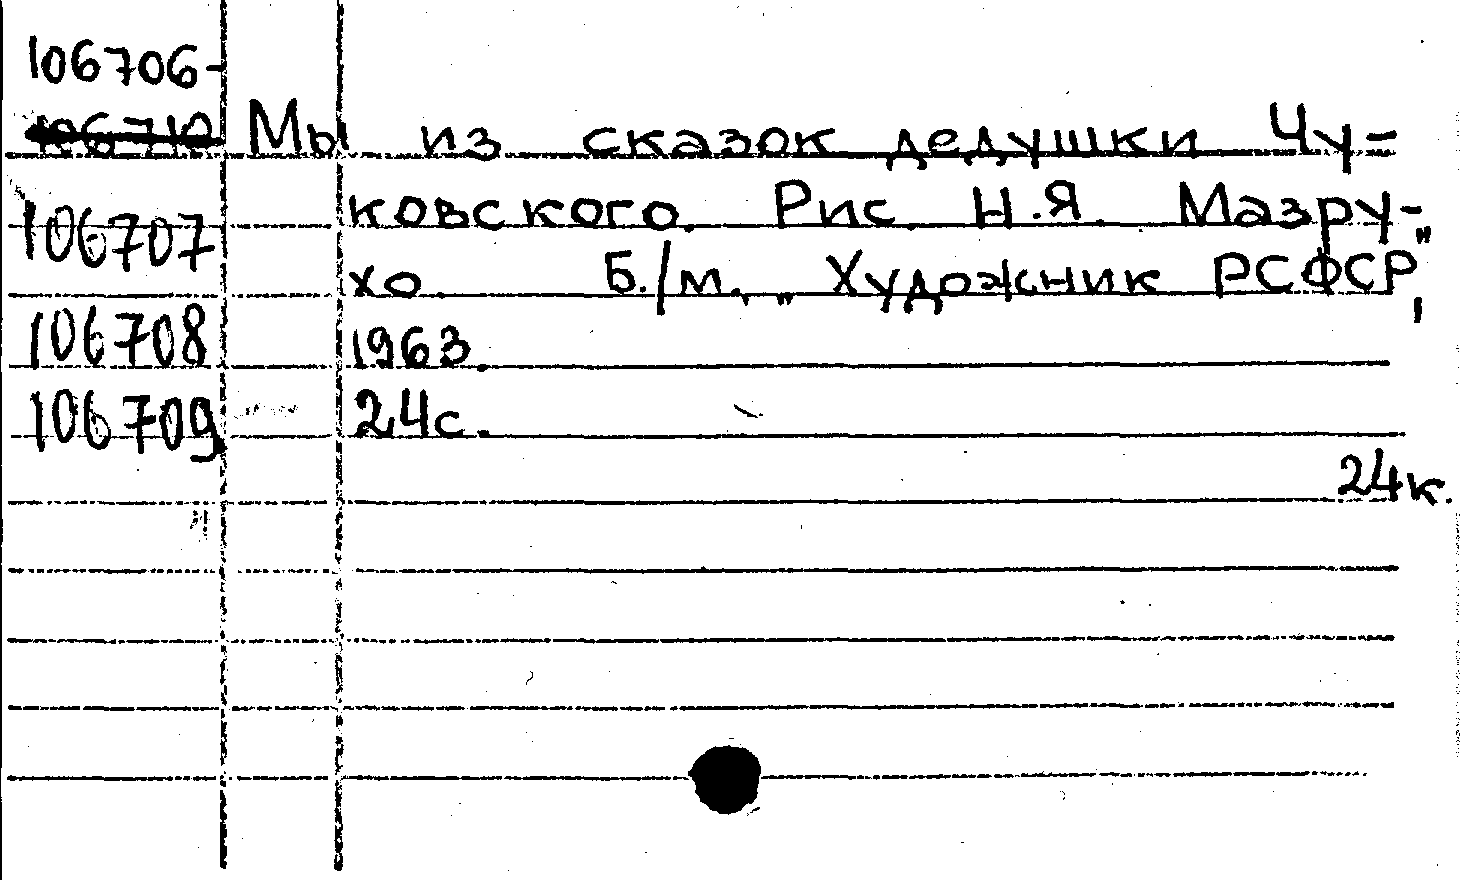 106706-
106710 Мы из сказок дедушки Чу-
106707 ковского. Рис. Н.Я. Мазру-
хо. Б./м., „Художник РСФСР",
106708 1963.
106709 24с.
24к.